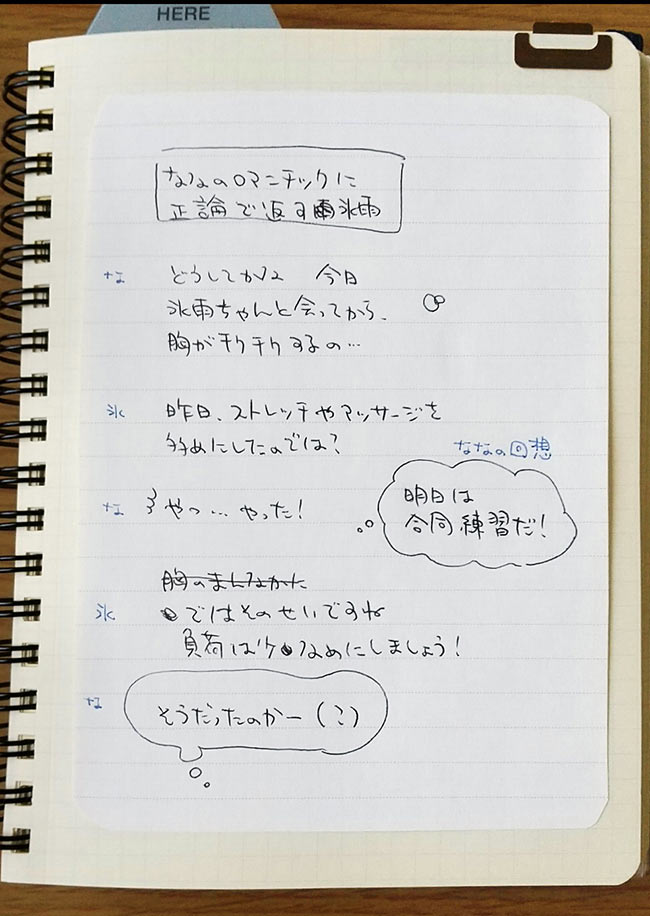 HERE
ななのロマンチックに
正論で返す氷雨
な どうしてかな 今日
氷雨ちゃんと会ってから、
胸がチクチクするの…
氷 昨日、ストレッチやマッサージを
多めにしたのでは?
ななの回想
明日は
合同練習だ!
な やっ…やった!
胸のまんなかた
氷 ではそのせいですね
負荷は少なめにしましょう!
な そうだったのかー(?)